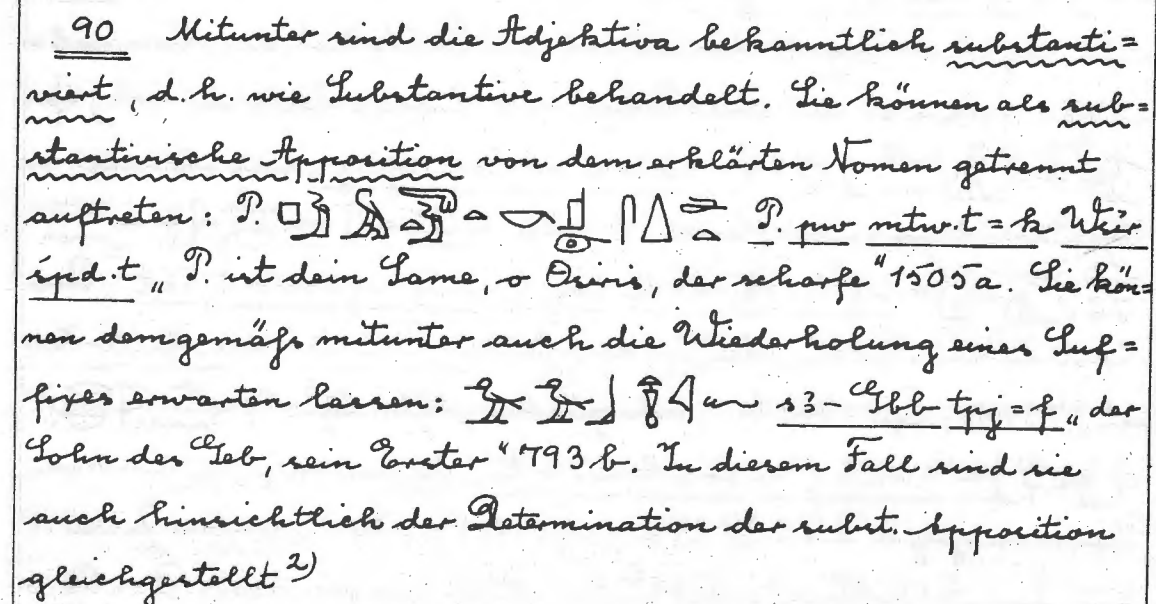 90 Mitunter sind die Adjektiva bekanntlich substanti=
viert, d.h. wie Substantive behandelt. Sie können als sub=
stantivische Apposition von dem erklärten Nomen getrennt
auftreten: P. P. pw mtw.t=k Wśir
śpd.t „P. ist dein Same, o Osiris, der scharfe“ 1505a. Sie kön=
nen demgemäß mitunter auch die Wiederholung eines Suf=
fixes erwarten lassen: s3-Gbb tpj=f „der
Sohn des Geb, sein Erster“ 793b. In diesem Fall sind sie
auch hinsichtlich der Determination der subst. Apposition
gleichgestellt 2)